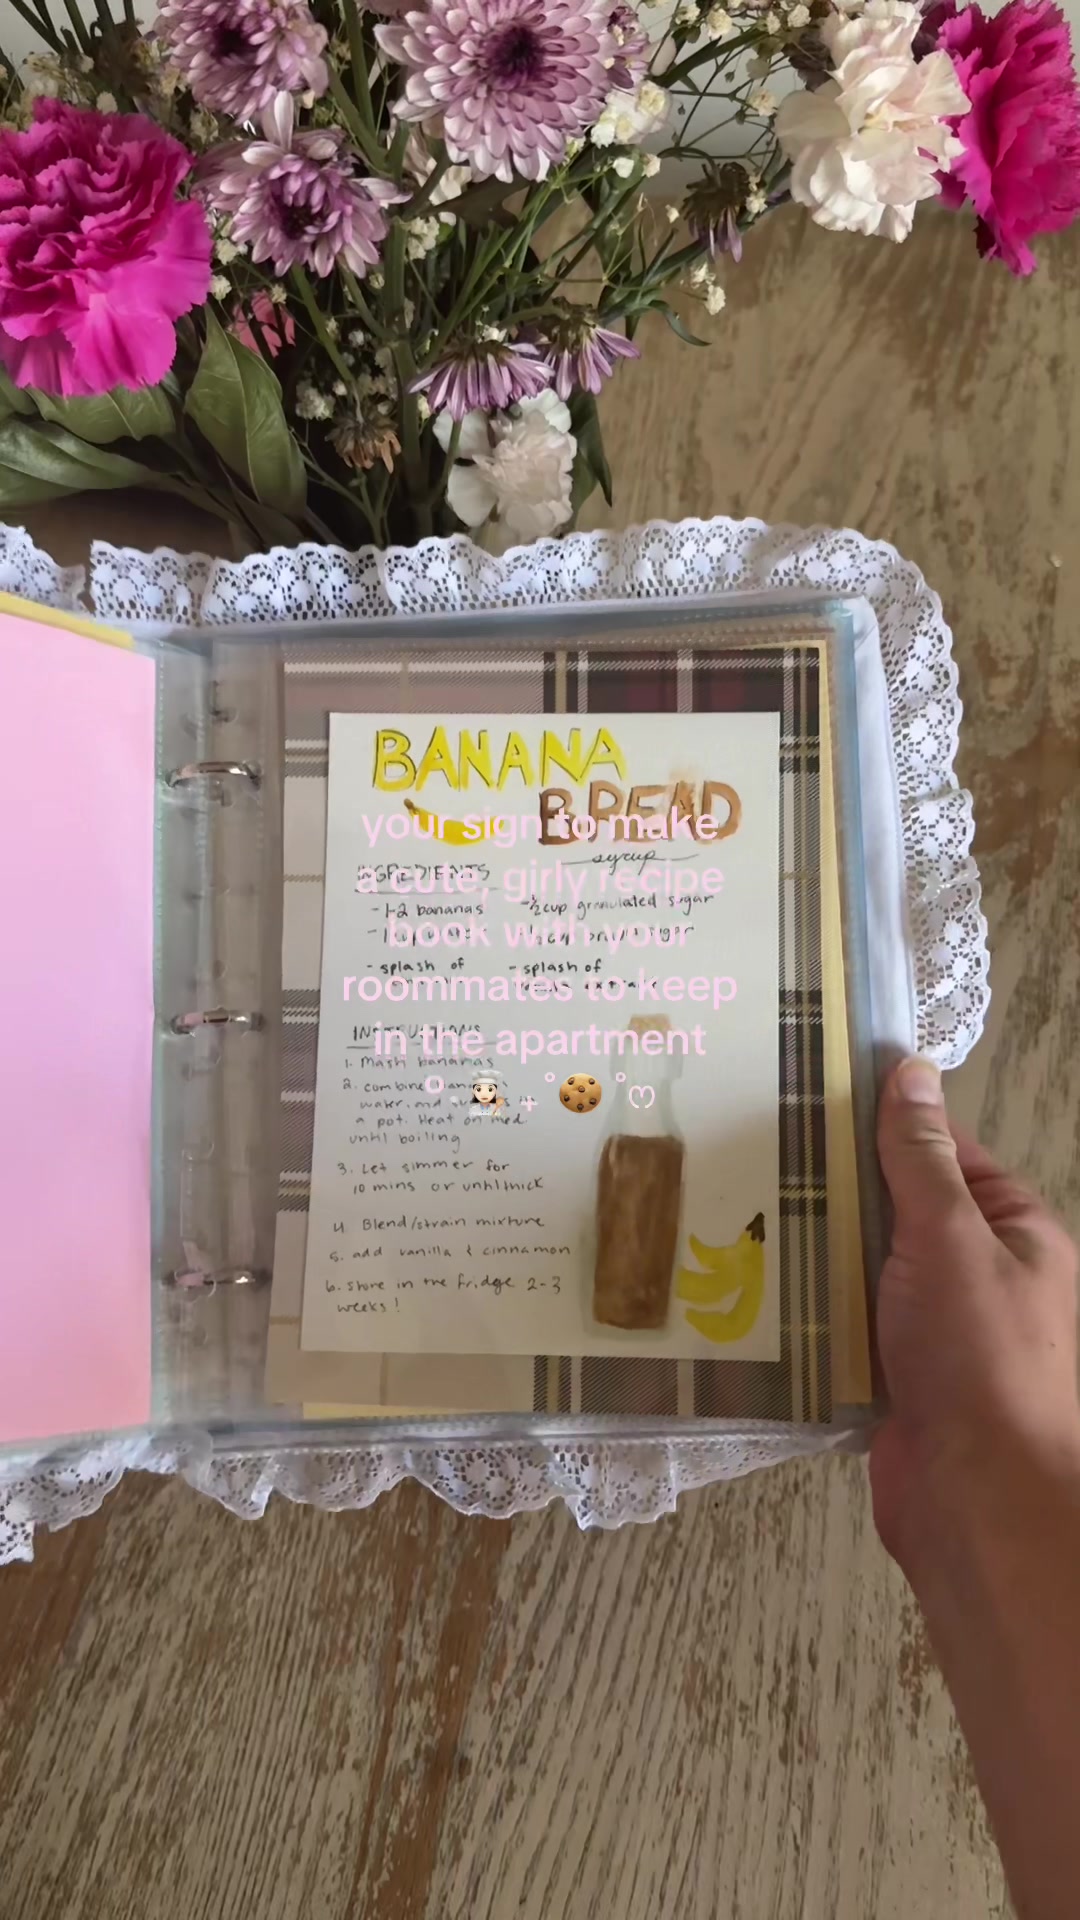 BANANA
BREAD
syrup
INGREDIENTS
- 1-2 bananas
- ½ cup granulated sugar
- splash of
- splash of
INSTRUCTIONS
1. Mash bananas
2. combine
water, and
a pot. Heat on med.
until boiling
3. Let simmer for
10 mins or until thick
4. Blend/strain mixture
5. add vanilla & cinnamon
6. store in the fridge 2-3
weeks!
your sign to make
a cute, girly recipe
book with your
roommates to keep
in the apartment